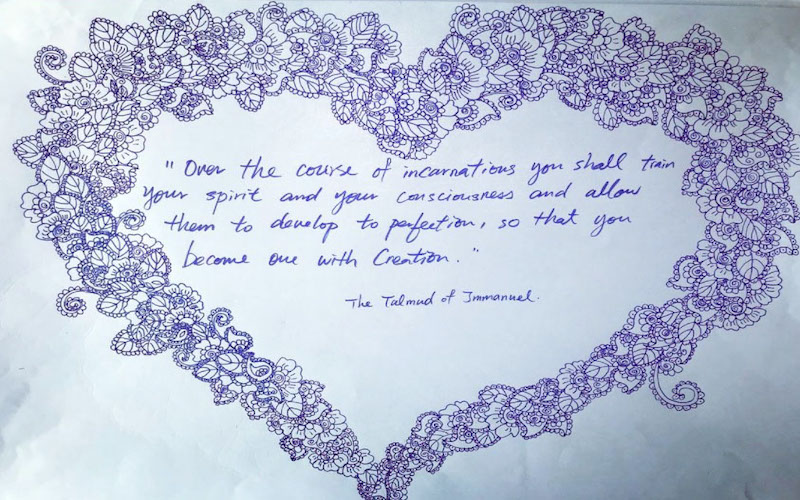 "Over the course of incarnations you shall train
your spirit and your consciousness and allow
them to develop to perfection, so that you
become one with Creation."
The Talmud of Jmmanuel.